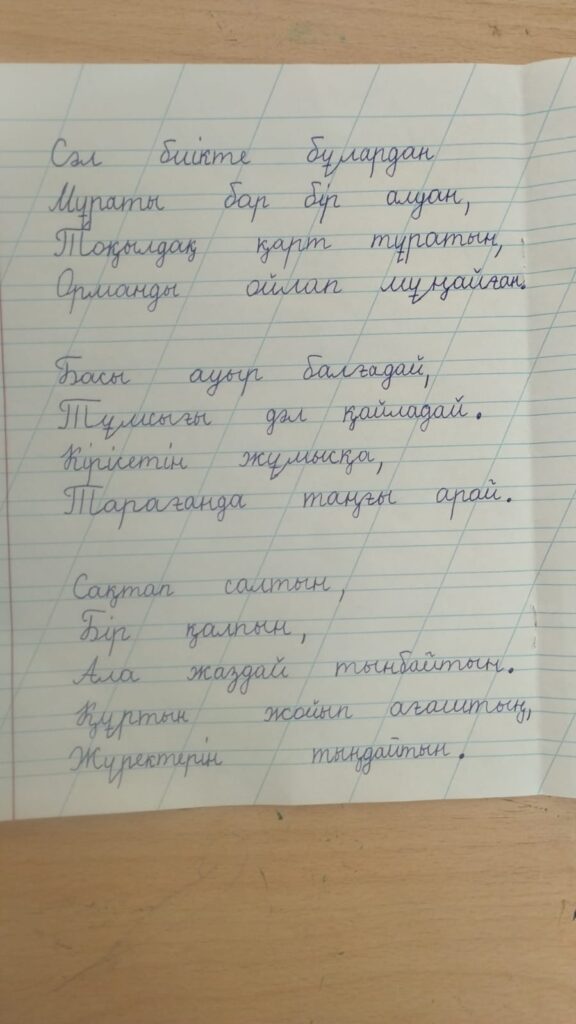 Сәл биікте бұлардан
Мұраты бар бір алуан,
Тоқылдақ қарт тұратын,
Орманды ойлап мұңайған.
Басы ауыр балғадай,
Тұмсығы дәл қайладай.
Кірісетін жұмысқа,
Тарағанда таңғы арай.
Сақтап салтын,
Бір қалпын,
Ала жаздай тынбайтын.
Құртын жойып ағаштың,
Жүректерін тыңдайтын.